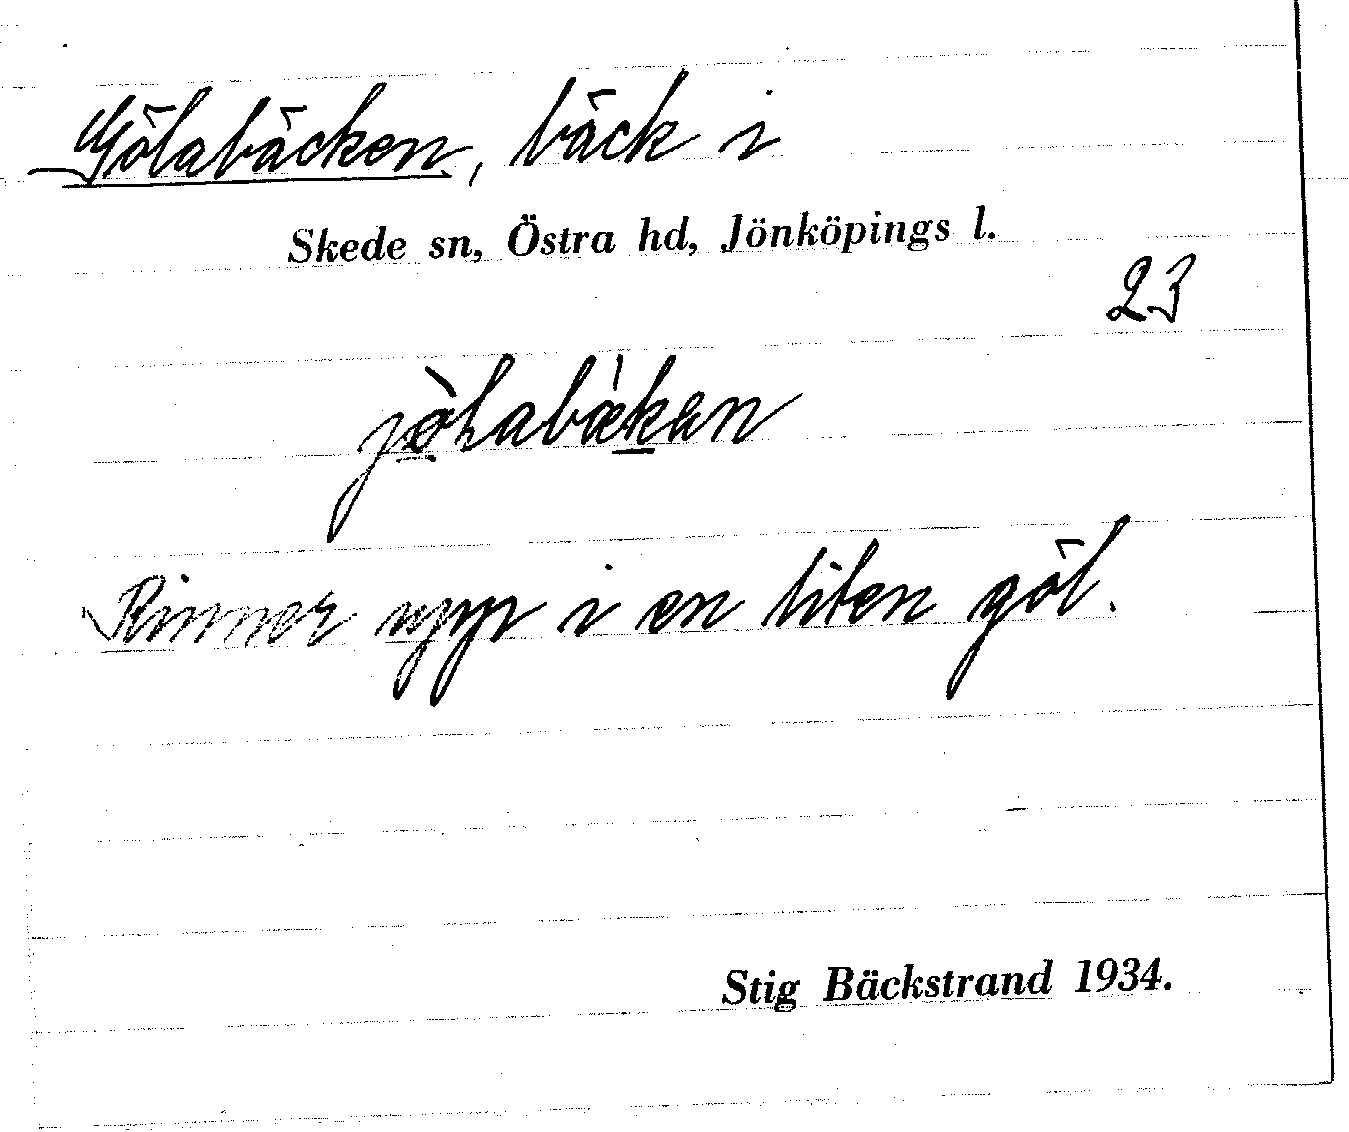 Gölabäcken, bäck i
Skede sn, Östra hd, Jönköpings l.
23
jòlabæ̀kan
Rinner upp i en liten göl.
Stig Bäckstrand 1934.